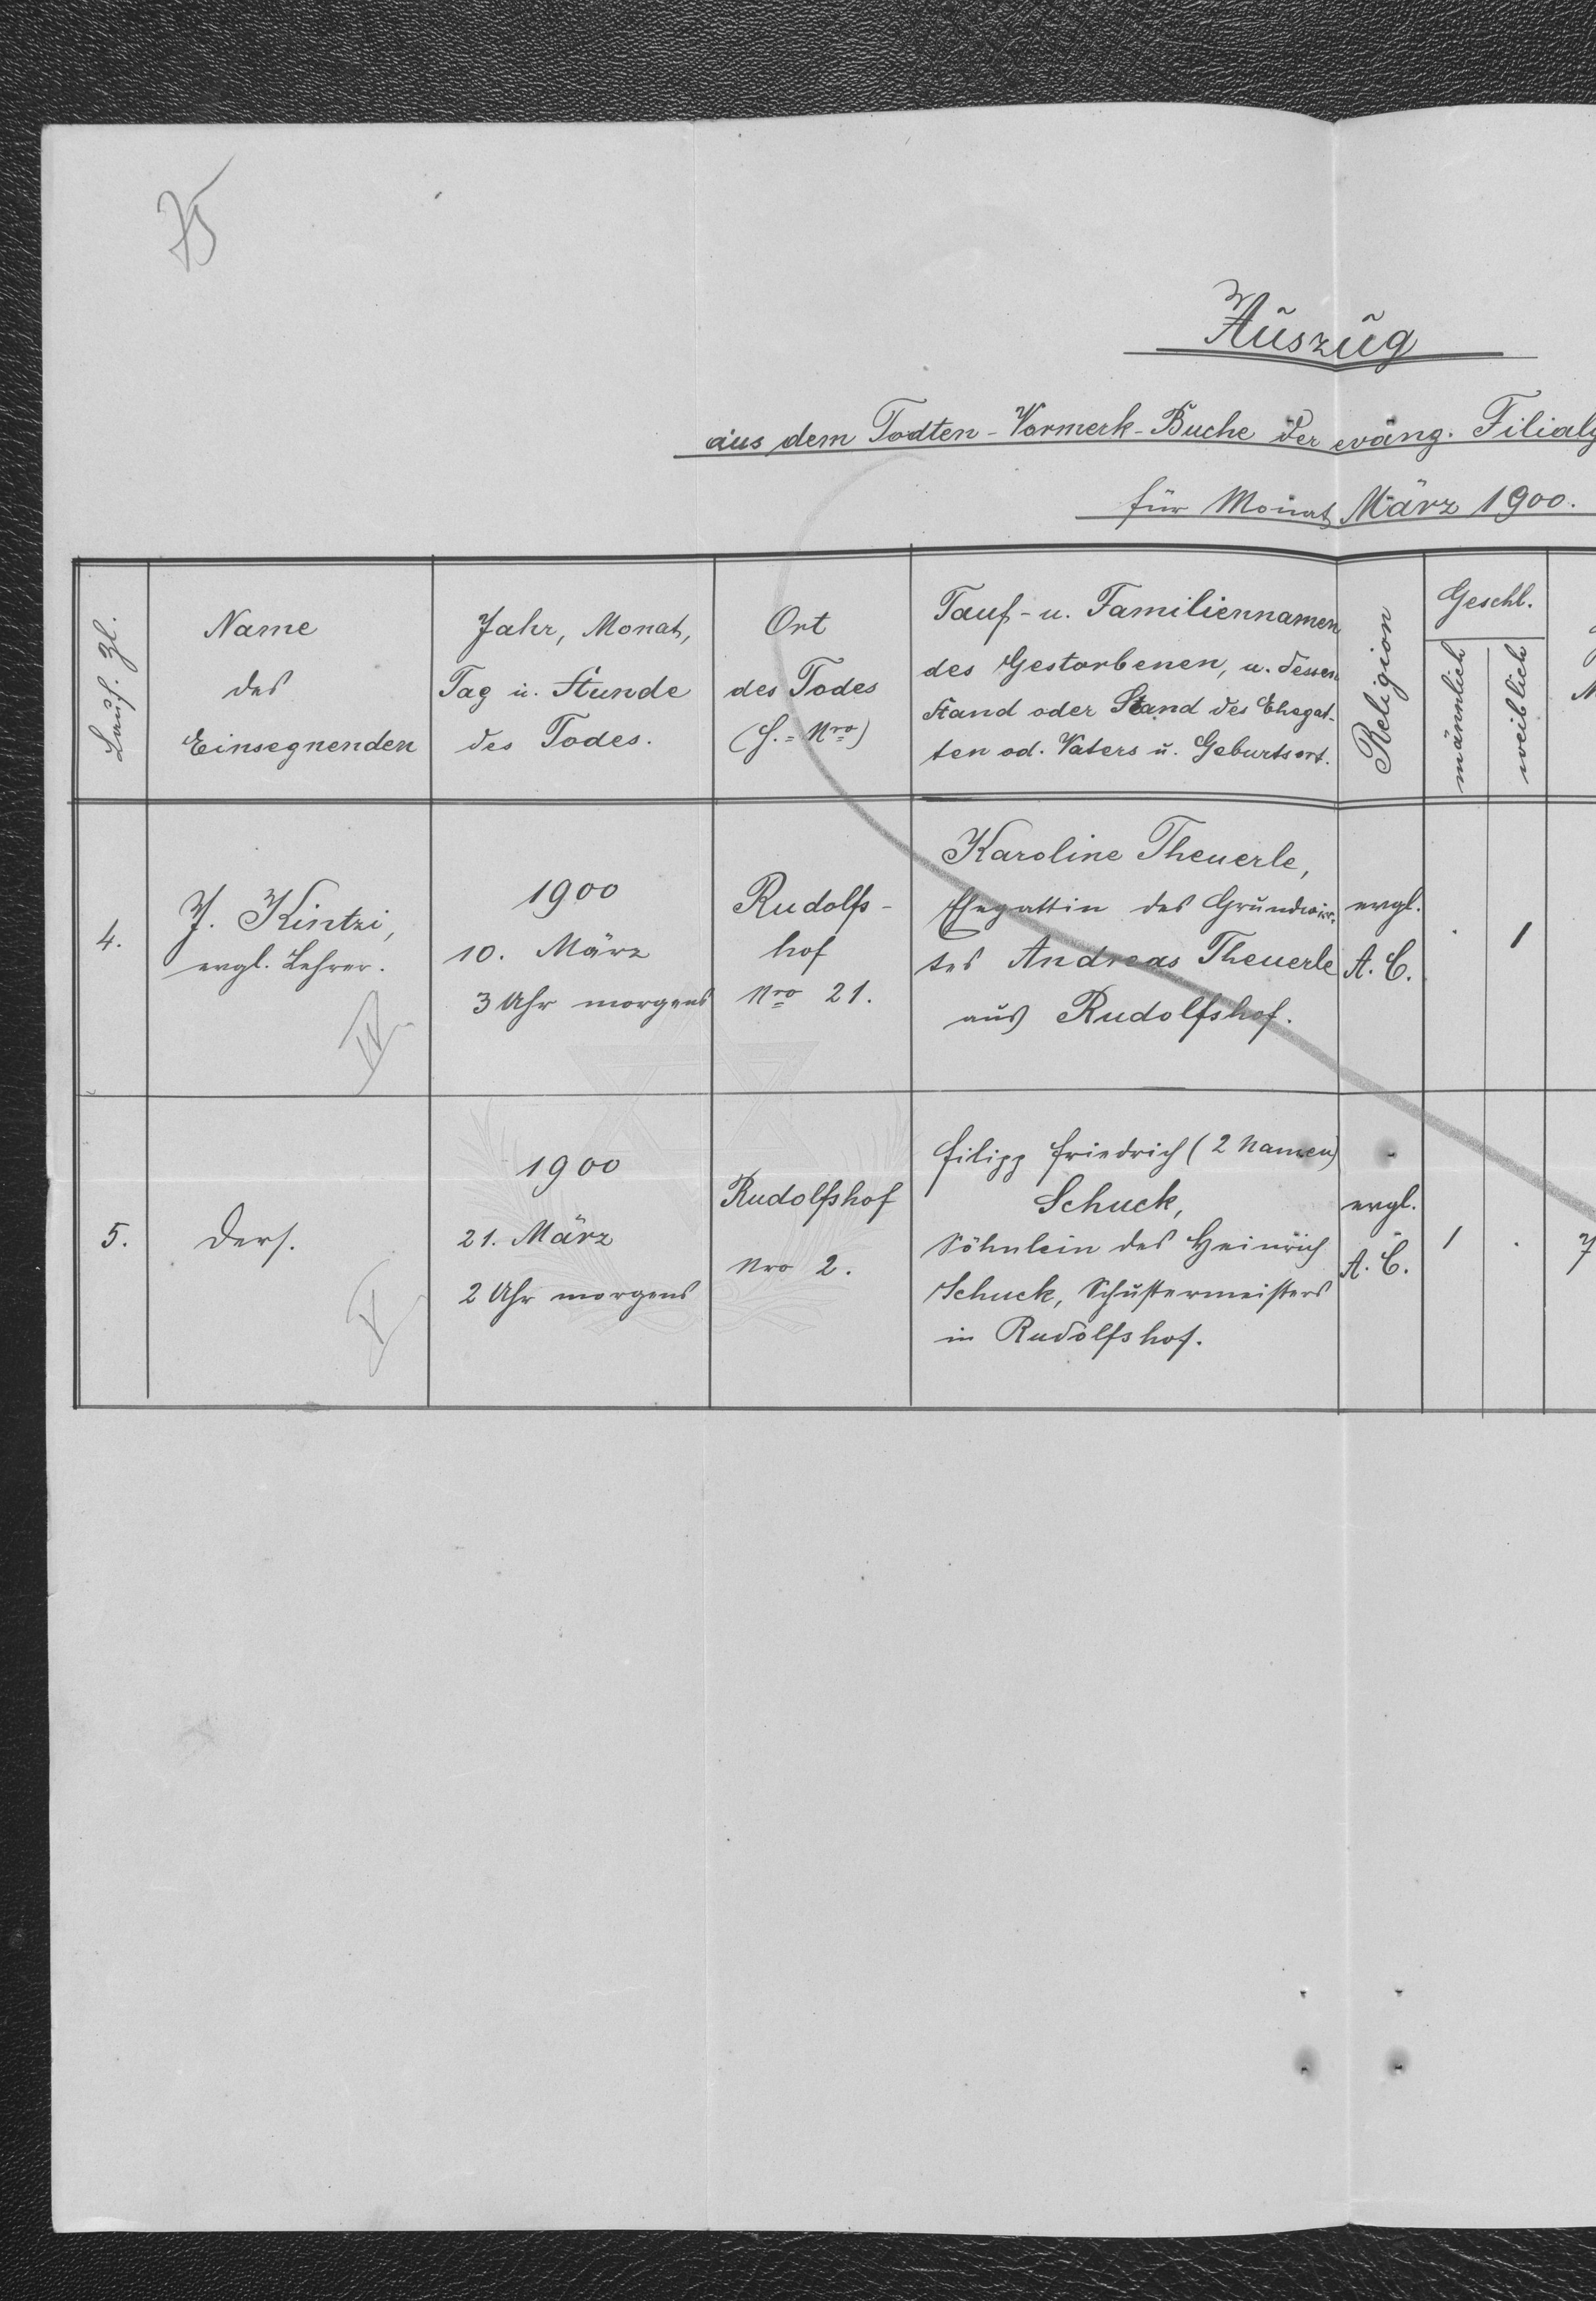 75
Auszug
aus dem Todten-Vormerk-Buche der evang. Filialg
für Monat März 1900.
Lauf. Zl.
Name
des
Einsegnenden
Jahr, Monat,
Tag u. Stunde
des Todes.
Ort
des Todes
(H.=Nro)
Tauf- u. Familiennamen
des Gestorbenen, u. dessen
Stand oder Stand des Ehegat-
ten od. Vaters u. Geburtsort.
Religion
Geschl.
männlich
weiblich
4.
J. Kintzi,
evgl. Lehrer.
1900
10. März
3 Uhr morgens
Rudolfs-
hof
Nro 21.
Karoline Theuerle,
Ehegattin des Grundwir-
tes Andreas Theuerle
aus Rudolfshof.
evgl.
A. C.
.
1
5.
Ders.
1900
21. März
2 Uhr morgens
Rudolfshof
Nro 2.
Filipp Friedrich (2 Namen)
Schuck,
Söhnlein des Heinrich
Schuck, Schustermeisters
in Rudolfshof.
evgl.
A. C.
1
.